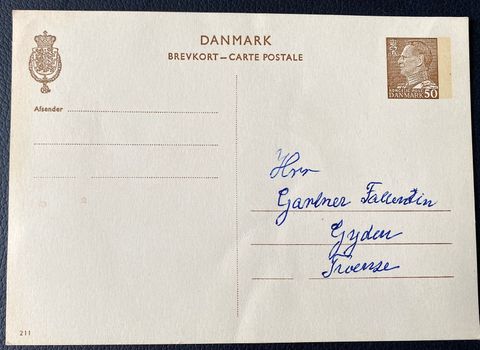 DANMARK
BREVKORT — CARTE POSTALE
DANMARK 50
Afsender
Hrr
Gartner
Gyden
Troense
211